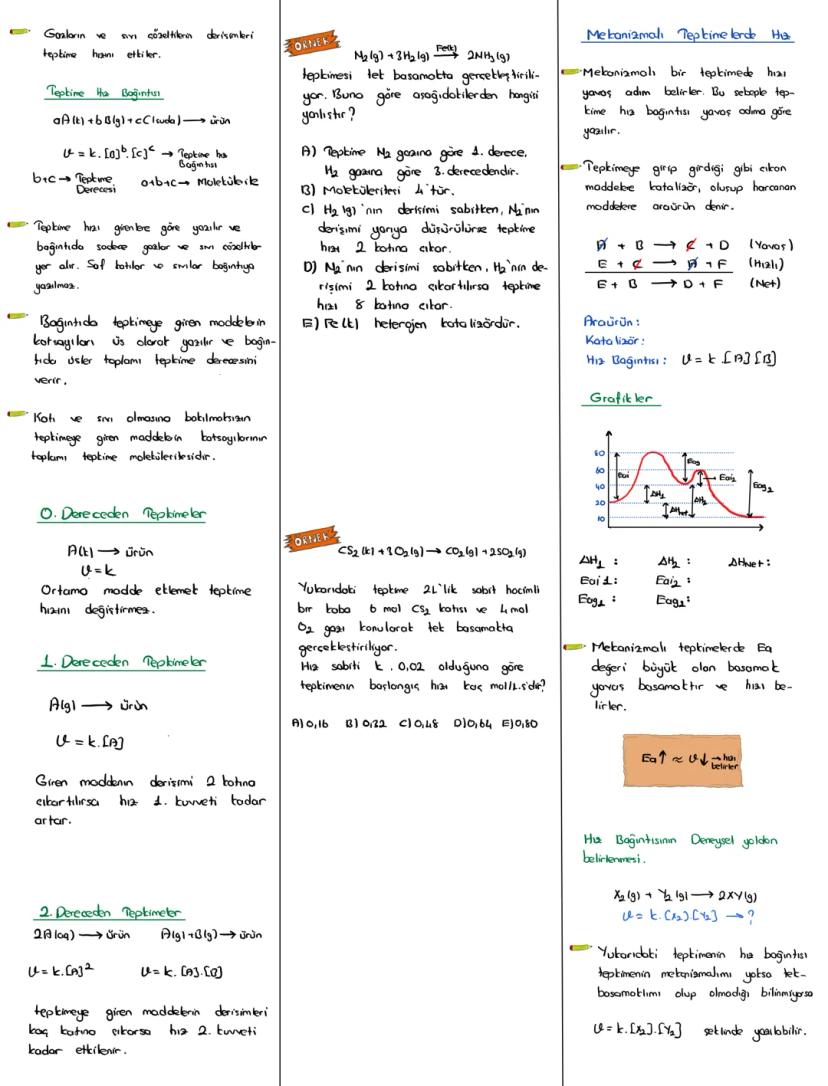 Gazların ve sıvı çözeltilerin derişimleri
tepkime hızını etkiler.
Tepkime Hız Bağıntısı
aA(k)+bB(g)+cC(suda) → ürün
υ = k. [B]ᵇ. [C]ᶜ → Tepkime hız
Bağıntısı
b+c → Tepkime
Derecesi
a+b+c → Molekülerite
Tepkime hızı girenlere göre yazılır ve
bağıntıda sadece gazlar ve sıvı çözeltiler
yer alır. Saf katılar ve sıvılar bağıntıya
yazılmaz.
Bağıntıda tepkimeye giren maddelerin
katsayıları üs olarak yazılır ve bağın-
tıda üsler toplamı tepkime derecesini
verir.
Katı ve sıvı olmasına bakılmaksızın
tepkimeye giren maddelerin katsayılarının
toplamı tepkime moleküleritesidir.
0. Dereceden Tepkimeler
A(k) → ürün
υ = k
Ortama madde eklemek tepkime
hızını değiştirmez.
1. Dereceden Tepkimeler
A(g) → ürün
υ = k.[A]
Giren maddenin derişimi 2 katına
çıkartılırsa hız 1. kuvveti kadar
artar.
2. Dereceden Tepkimeler
2A(aq) → ürün A(g)+B(g) → ürün
υ = k.[A]² υ = k. [A].[B]
tepkimeye giren maddelerin derişimleri
kaç katına çıkarsa hız 2. kuvveti
kadar etkilenir.
ÖRNEK
N₂(g) + 3H₂(g) →Fe(k) 2NH₃(g)
tepkimesi tek basamakta gerçekleştirili-
yor. Buna göre aşağıdakilerden hangisi
yanlıştır?
A) Tepkime N₂ gazına göre 1. derece,
H₂ gazına göre 3. derecedendir.
B) Moleküleritesi 4'tür.
C) H₂(g)'nın derişimi sabitken, N₂'nın
derişimi yarıya düşürülürse tepkime
hızı 2 katına çıkar.
D) N₂'nın derişimi sabitken, H₂'nın de-
rişimi 2 katına çıkartılırsa tepkime
hızı 8 katına çıkar.
E) Fe(k) heterojen katalizördür.
ÖRNEK
CS₂(k)+3O₂(g) → CO₂(g)+2SO₂(g)
Yukarıdaki tepkime 2L'lik sabit hacimli
bir kaba 6 mol CS₂ katısı ve 4 mol
O₂ gazı konularak tek basamakta
gerçekleştiriliyor.
Hız sabiti k, 0,02 olduğuna göre
tepkimenin başlangıç hızı kaç mol/L.s'dir?
A) 0,16 B) 0,32 C) 0,48 D) 0,64 E) 0,80
Mekanizmalı Tepkimelerde Hız
Mekanizmalı bir tepkimede hızı
yavaş adım belirler. Bu sebeple tep-
kime hız bağıntısı yavaş adıma göre
yazılır.
Tepkimeye girip girdiği gibi çıkan
maddelere katalizör, oluşup harcanan
maddelere araürün denir.
A + B → C + D (Yavaş)
E + C → A + F (Hızlı)
E + B → D + F (Net)
Araürün :
Katalizör :
Hız Bağıntısı : υ = k .[A][B]
Grafikler
80
60
40
20
10
Eai
ΔH₁
ΔHnet
Eag
ΔH₂
Eai₂
Eag₂
ΔH₁ : ΔH₂ : ΔHnet :
Eai1: Eai₂ :
Eag₁ : Eag₂:
Mekanizmalı tepkimelerde Ea
değeri büyük olan basamak
yavaş basamaktır ve hızı be-
lirler.
Ea↑ ≈ υ↓ → hızı
belirler
Hız Bağıntısının Deneysel yoldan
belirlenmesi.
X₂(g) + Y₂(g) → 2XY(g)
υ = k.[X₂].[Y₂] → ?
Yukarıdaki tepkimenin hız bağıntısı
tepkimenin mekanizmalımı yoksa tek-
basamaklımı olup olmadığı bilinmiyorsa
υ = k.[X₂].[Y₂] şeklinde yazılabilir.